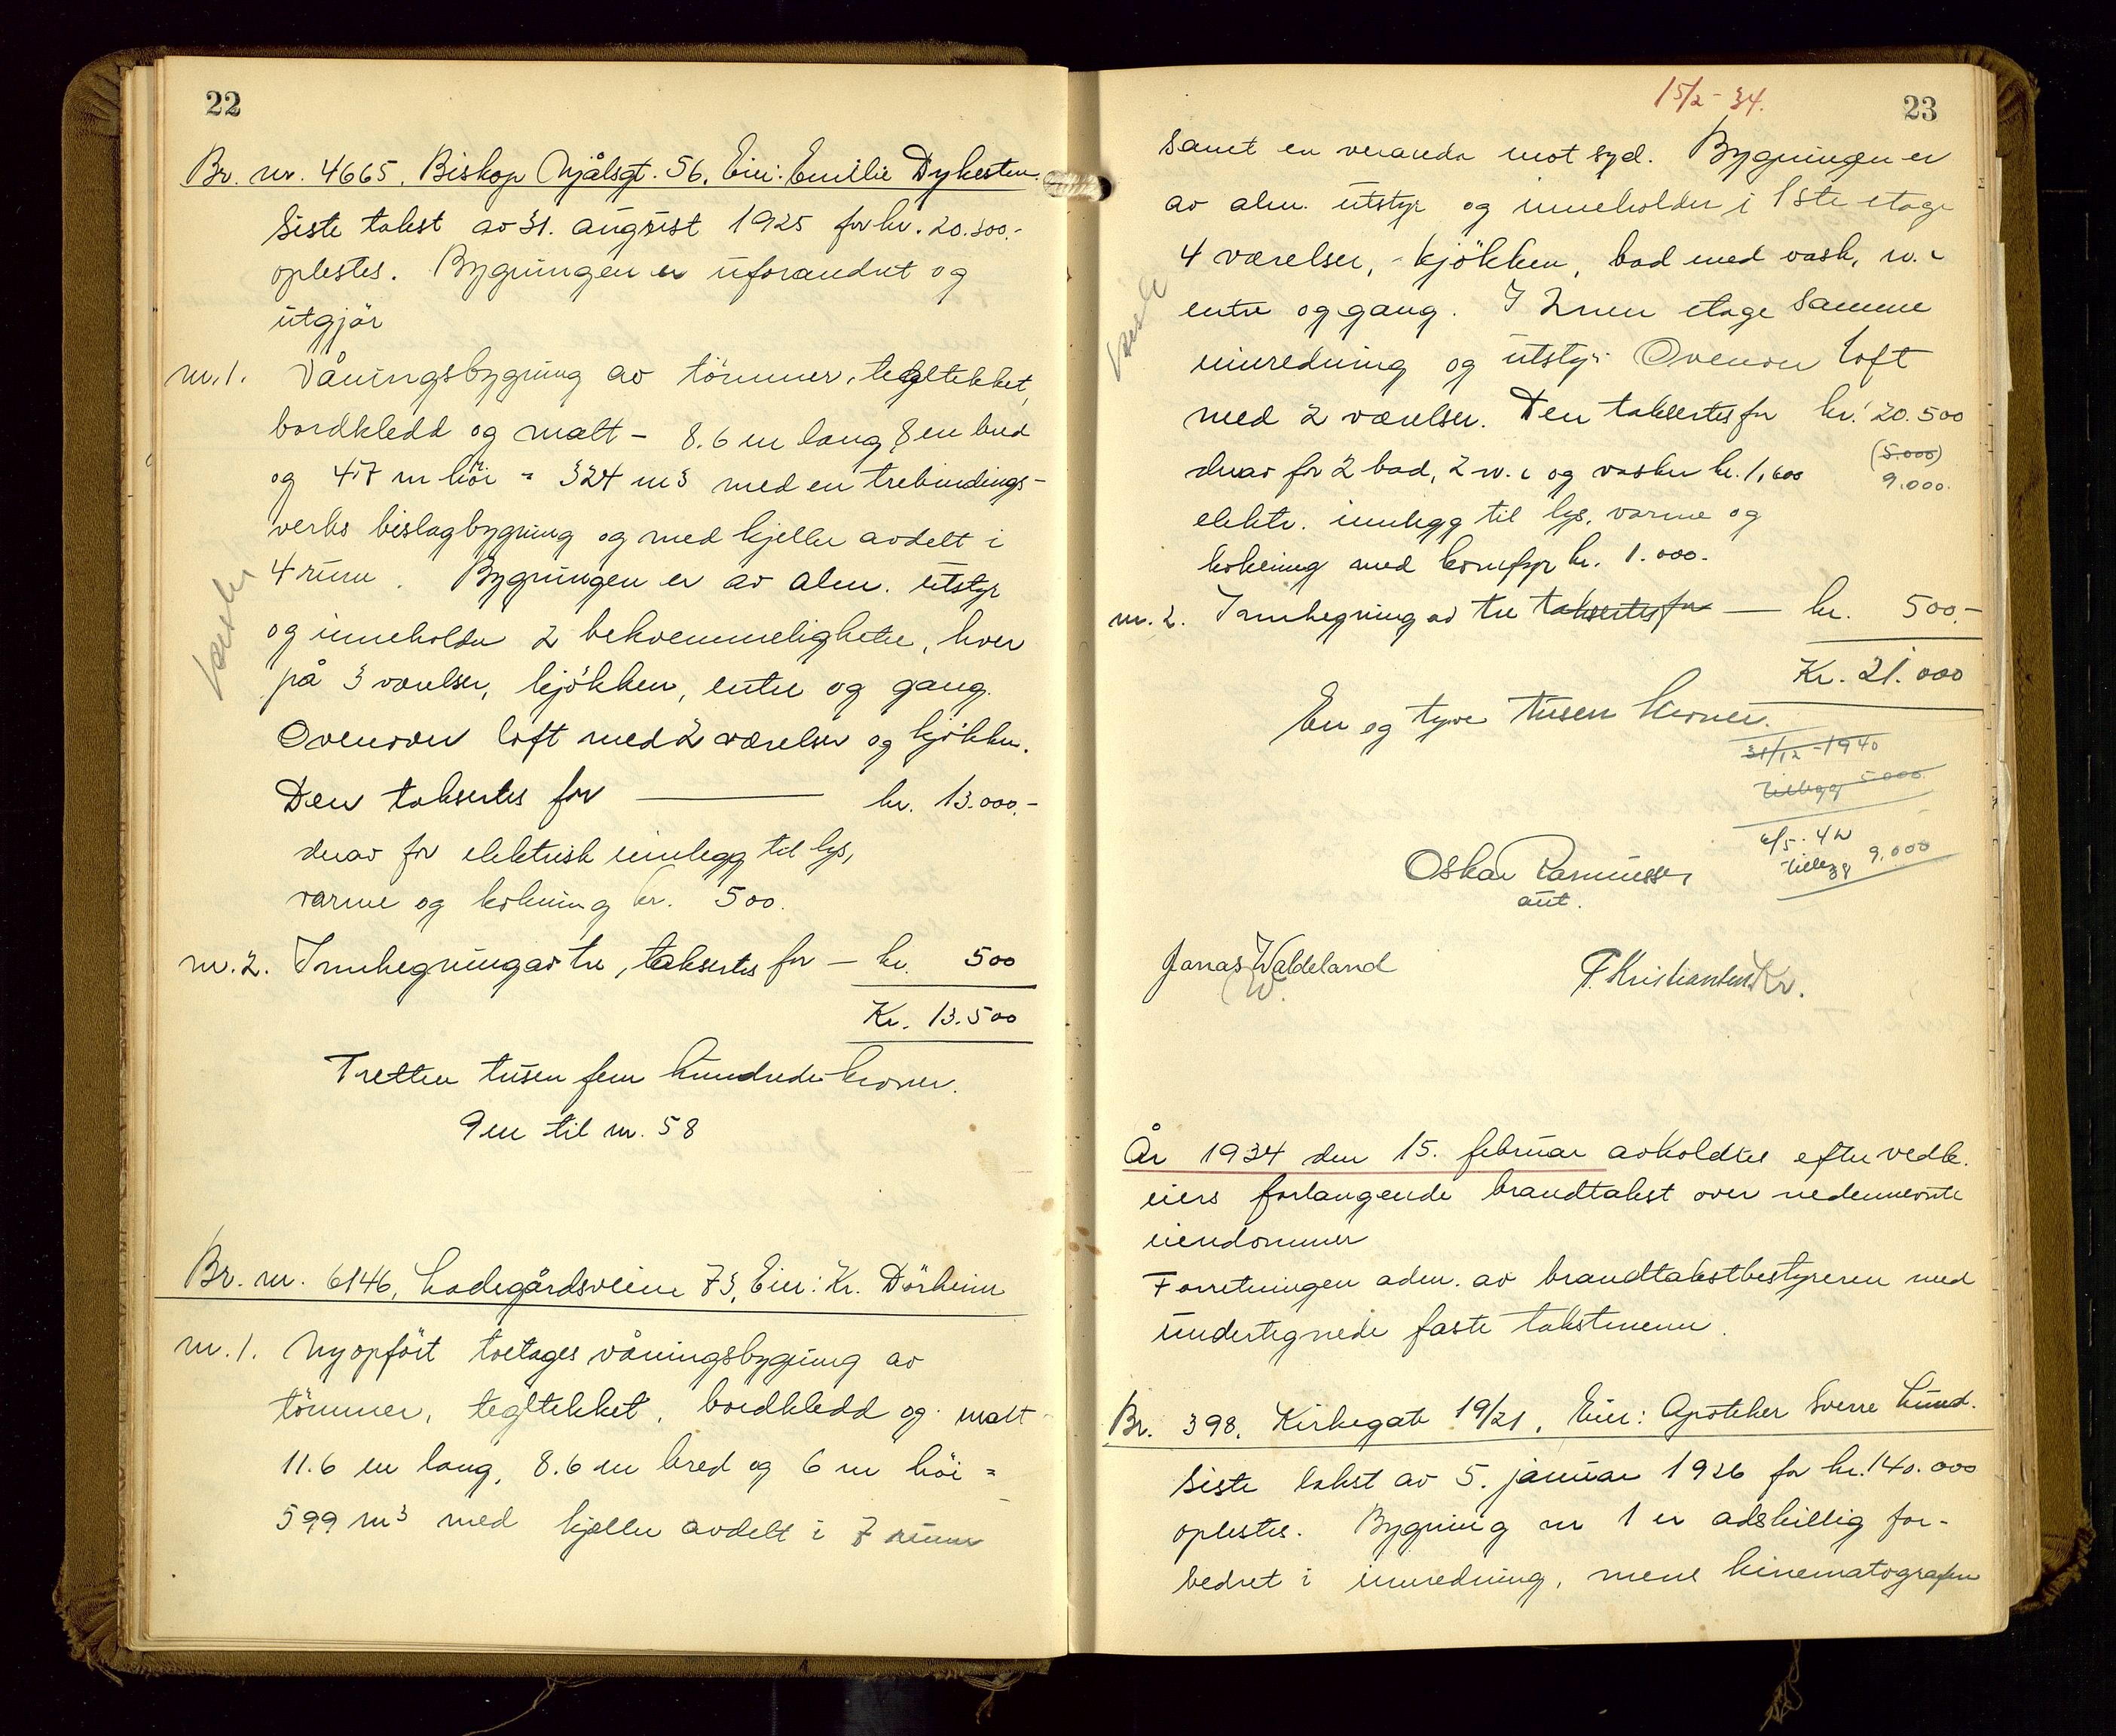 22
Br. nr. 4665. Biskop Njålsgt. 56. Eier: Emilie Dykesten.
Siste takst av 31. august 1925 for kr. 20.300.-
oplestes. Bygningen er uforandret og
utgjör
nr. 1. Våningsbygning av tömmer, tegltekket,
bordkledd og malt - 8.6 m lang 8 m bred
og 4.7 m höi = 324 m3 med en trebindings-
verks bislagbygning og med kjeller avdelt i
4 rum. Bygningen er av alm. utstyr
og inneholder 2 bekvemmeligheter, hver
på 3 værelser, kjökken, entre og gang.
Ovenover loft med 2 værelser og kjökken.
Den taksertes for — kr. 13.000.-
derav for elektrisk innlegg til lys,
varme og kokning kr. 500.
nr. 2. Innhegning av tre, taksertes for — kr. 500
Kr. 13.500
Tretten tusen fem hundrede kroner.
9 m til nr. 58
Br. nr. 6146, Ladegårdsveien 73, Eier: Kr. Dörheim
nr. 1. Nyopfört toetages våningsbygning av
tömmer, tegltekket, bordkledd og malt
11.6 m lang, 8.6 m bred og 6 m höi =
599 m3 med kjeller avdelt i 7 rum
15/2 - 34.
23
samt en veranda mot syd. Bygningen er
av alm. utstyr og inneholder i 1ste etage
4 værelser, kjökken, bad med vask, w.c
entre og gang. I 2nen etage samme
innredning og utstyr. Ovenover loft
med 2 værelser. Den taksertes for kr. 20.500
derav for 2 bad, 2 w.c og vasker kr. 1,600
(5.000)
9.000.
elektr. innlegg til lys, varme og
kokning med komfyr kr. 1.000.
nr. 2. Innhegning av tre taksertes for — kr. 500.-
Kr. 21.000
En og tyve tusen kroner.
31/12 - 1940
tillegg 5000
6/5 - 42
tillegg 9.000
Oskar Rasmussen
aut.
Jonas Waldeland
W.
F. Kristiansen Kr.
År 1934 den 15. februar avholdtes efter vedk.
eiers forlangende brandtakst over nedennevnte
eiendommer
Forretningen adm. av brandtakstbestyreren med
undertegnede faste takstmenn.
Br. 398. Kirkegate 19/21. Eier: Apoteker Sverre Lund.
Siste takst av 5. januar 1926 for kr. 140.000
oplestes. Bygning nr 1 er adskillig for-
bedret i innredning, mens kinematografen